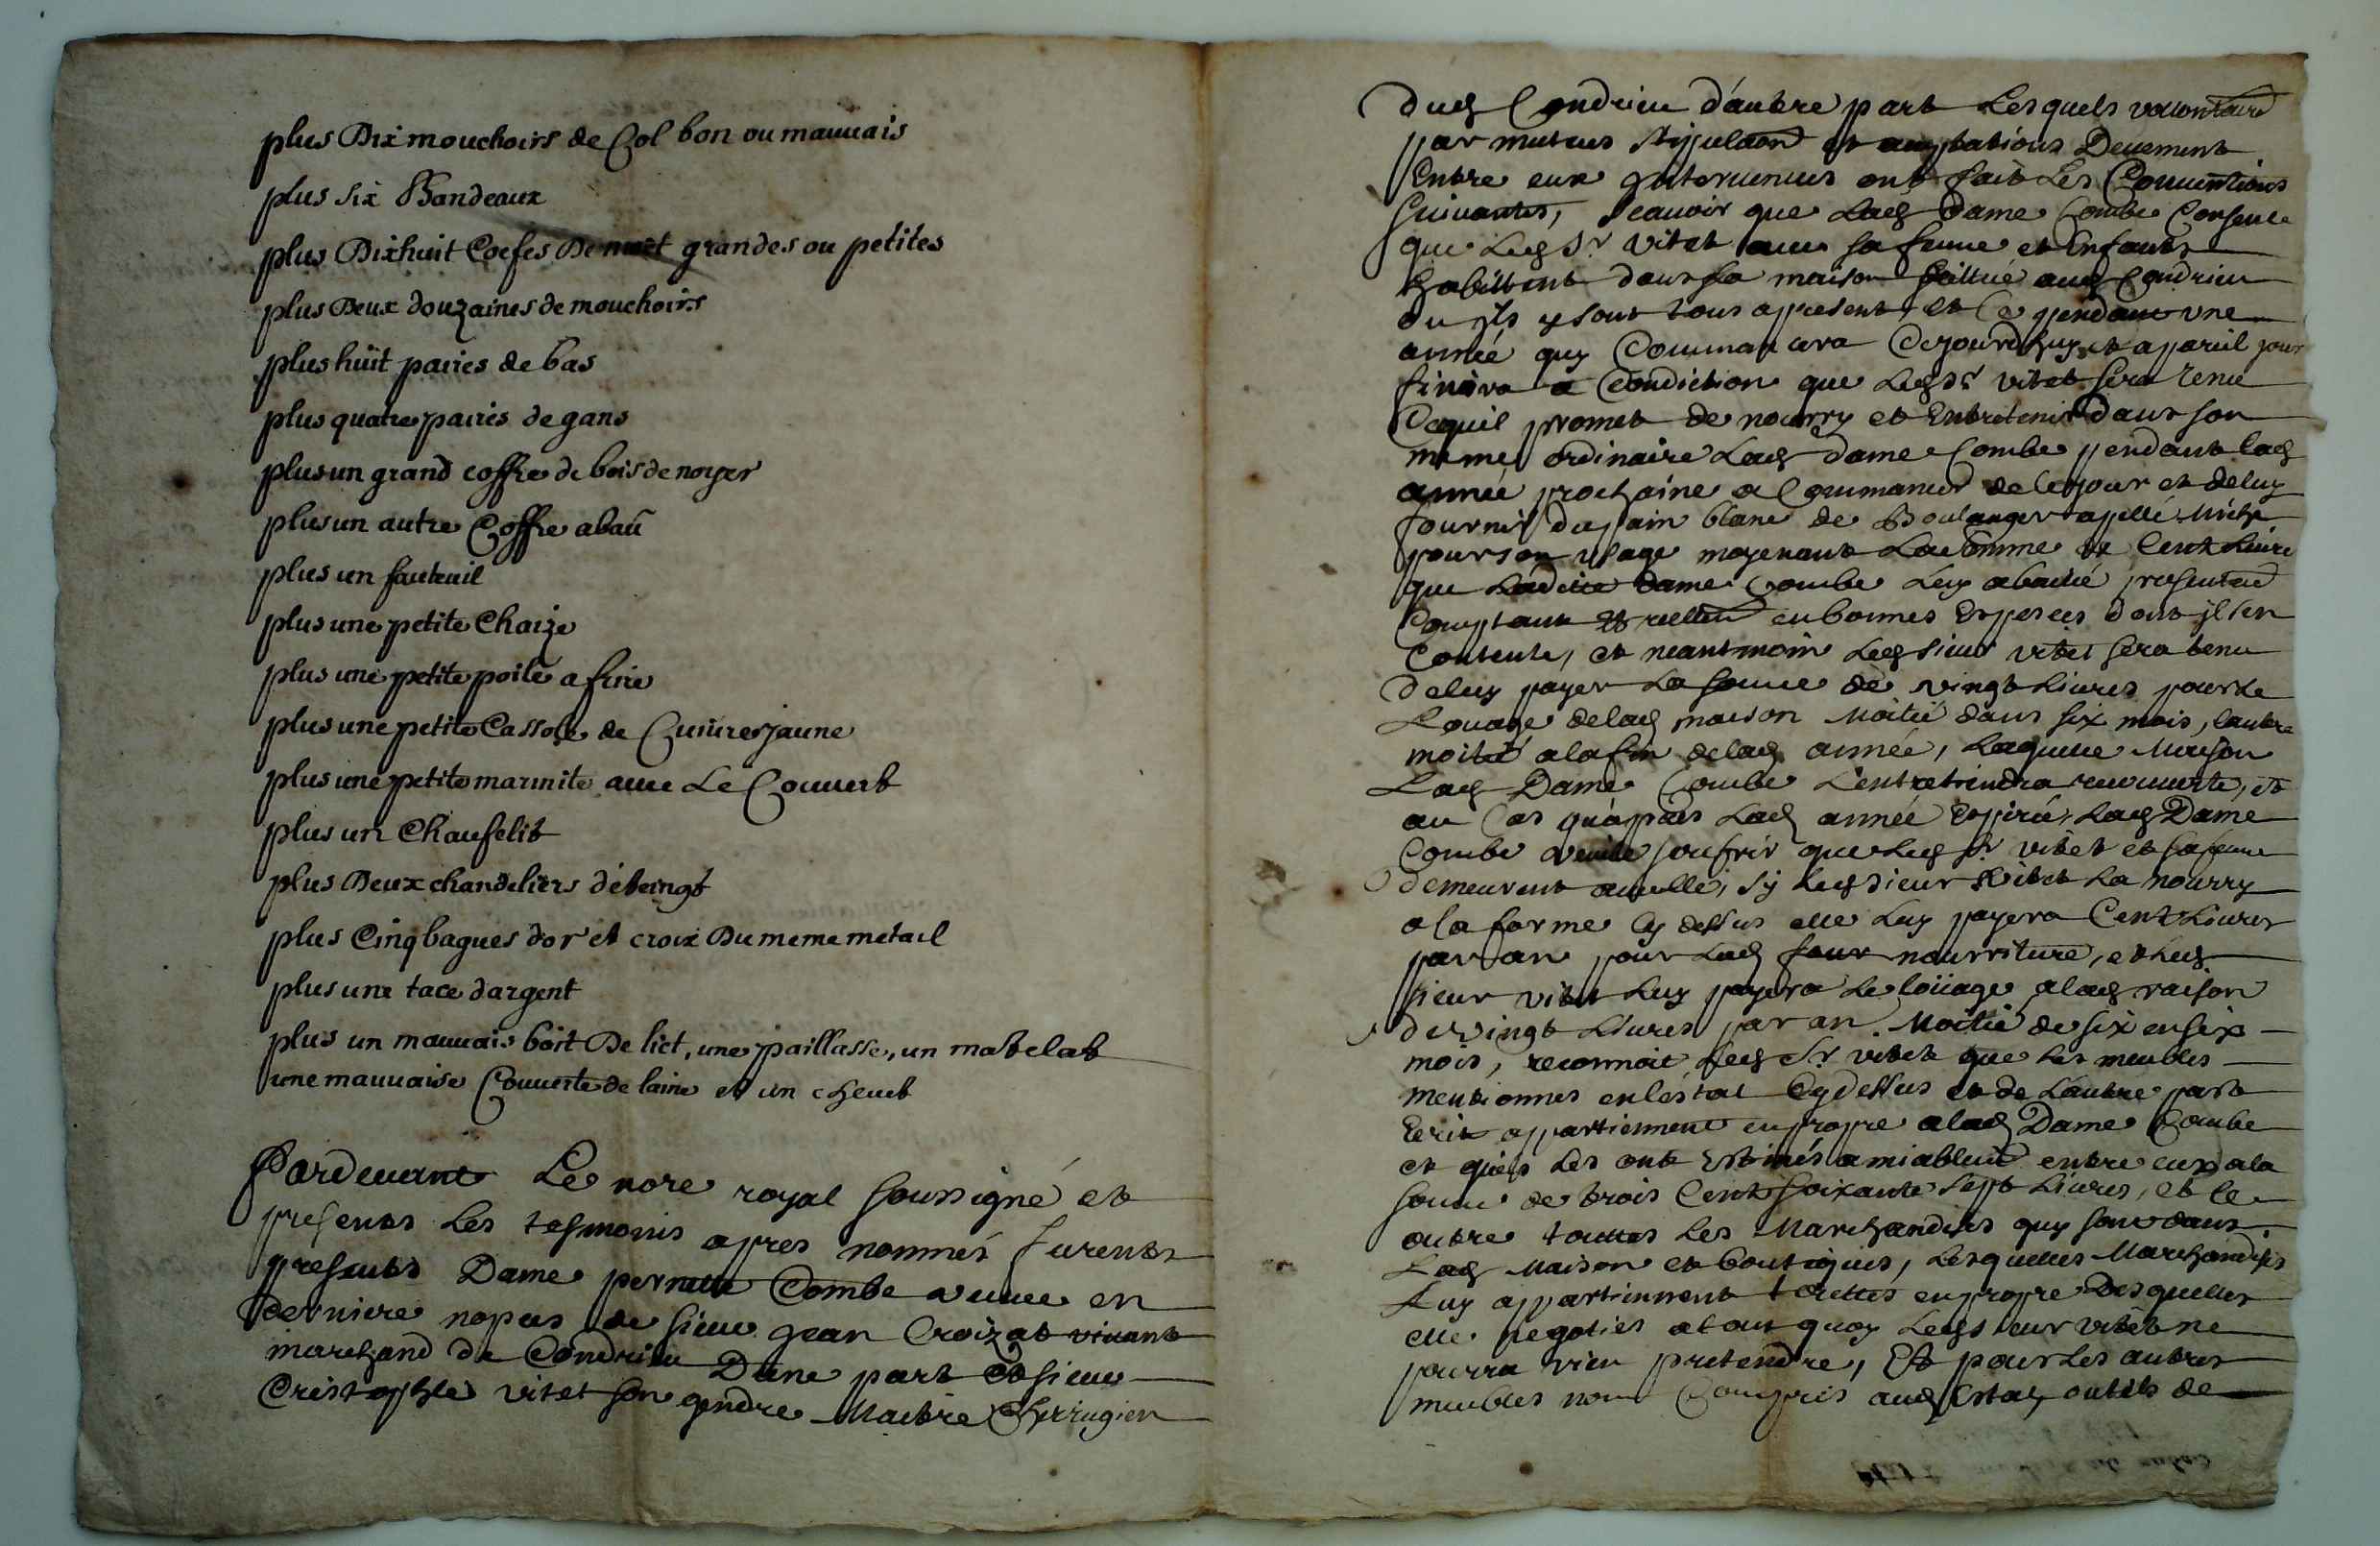 plus Dix mouchoirs de Col bon ou mauuais
plus six Bandeaux
plus Dixhuit Coefes De nuit grandes ou petites
plus Deux douzaines de mouchoirs
plus huit paires de bas
plus quatre paires de gans
plus un grand coffre de bois de noyer
plus un autre Coffre abaü
plus un fauteuil
plus une petite Chaize
plus une petite poile a frire
plus une petite Cassole de Cuiure jaune
plus une petite marmite auec Le Couuert
plus un Chaufelit
plus Deux chandeliers d'éteingt
plus Cinq bagues d'or et croix Du meme metail
plus une tace dargent
plus un mauuais boit De lict, une paillasse, un matelat
une mauuaise Couuerte de laine et un cheuet
Pardeuant Le nore royal soussigné et
presents Les tesmoins apres nommés furents
presents Dame pernette Combe veuue en
derniere nopces de sieur Jean Croizat viuant
marchand de Condrieu Dune part Et sieur
Cristophle vitet son gendre Maitre Chirrugien
dud Condrieu d'autre part Lesquels vollontaire
par mutues stipulaon et acceptations Deuement
Entre eux Interuenues ont fait Les Conuentions
suiuantes, scauoir que Lad dame Combe Consent
que Led Sr vitet auec sa femme et Enfants
habittent dans sa maison scittué aud Condrieu
ou ils y sont tous apresent, et Ce pendant une
année quy Commancera Cejourdhuy et apareil jour
finira a Condiction que Led Sr vitet sera tenu
Cequil promet de nourry et Entretenir dans son
meme ordinaire Lad dame Combe pendant lad
année prochaine a Commancer de Cejour et deluy
fournir du pain blanc de Boulanger apellé miche
pour son usage moyenant La somme de Cent Liures
que Ladite dame Combe Luy abaillé presentemt
Comptant et reellemt en bonnes Especes dont il sen
Contente, et neantmoin Led sieur vitet sera tenu
deluy payer La somme de vingt Liures pour Le
Louage delad maison Moitié dans six mois, lautre
moitié alafin delad année, Laquelle Maison
Lad Dame Combe L'entretiendra recouuerte, et
au Cas qu'apres Lad année Expirée, Lad Dame
Combe veuille soufrir que Led Sr vitet et sa femme
demeurent auec elle, sy Led sieur Vitet La nourry
ala forme Cy dessus elle Luy payera Cent Liures
par an pour Lad nourriture, et Led
sieur vitet Luy payera Le loüage alad raison
de vingt Liures par an. Moitié de six en six
mois, reconnoit Led Sr vitet que Les meubles
mentionnes en léstat Cy dessus et de L'autre part
Ecrit appartiennent en propre alad Dame Combe
et quils Les ont Estimés amiablemt entre eux ala
somme de trois Cent soixante sept Liures, et Ce
outre touttes Les Marchandises quy sont dans
Lad Maison et boutiques, Lesquelles Marchandises
Luy appartiennent touttes en propre Desquelles
elle negotie, atout quoy Led sieur vitet ne
pourra rien pretendre, Et pour Les autres
meubles non Compris aud Estat, outils de